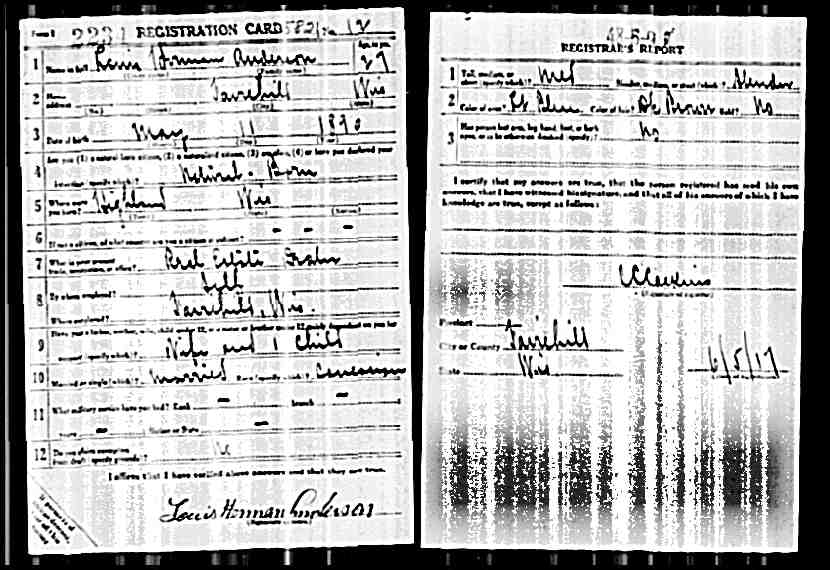 Form 1 2231 REGISTRATION CARD No. 12
1 Name in full Louis Herman Anderson Age, in yrs. 27
(Given name) (Family name)
2 Home address Taivehill Wis
(No.) (Street) (City) (State)
3 Date of birth May 11 1890
(Month) (Day) (Year)
4 Are you (1) a natural-born citizen, (2) a naturalized citizen, (3) an alien, (4) or have you declared your
intention (specify which)? Natural-Born
5 Where were you born? Highland Wis
(Town) (State) (Nation)
6 If not a citizen, of what country are you a citizen or subject? - - -
7 What is your present trade, occupation, or office? Real Estate
8 By whom employed? Self
Where employed? Taivehill, Wis.
9 Have you a father, mother, wife, child under 12, or a sister or brother under 12, solely dependent on you for
support (specify which)? Wife and 1 Child
10 Married or single (which)? Married Race (specify which)? Caucasian
11 What military service have you had? Rank - branch -
years - Nation or State -
12 Do you claim exemption from draft (specify grounds)?
I affirm that I have verified above answers and that they are true.
Louis Herman Anderson
(Signature or mark)
REGISTRAR'S REPORT
1 Tall, medium, or short (specify which)? Med Slender, medium, or stout (which)? Slender
2 Color of eyes? Lt Blue Color of hair? Dk Brown Bald? No
3 Has person lost arm, leg, hand, foot, or both
eyes, or is he otherwise disabled (specify)? No
I certify that my answers are true, that the person registered has read his own
answers, that I have witnessed his signature, and that all of his answers of which I have
knowledge are true, except as follows:
(Signature of registrar)
Precinct
City or County Taivehill
State Wis 6/5/17